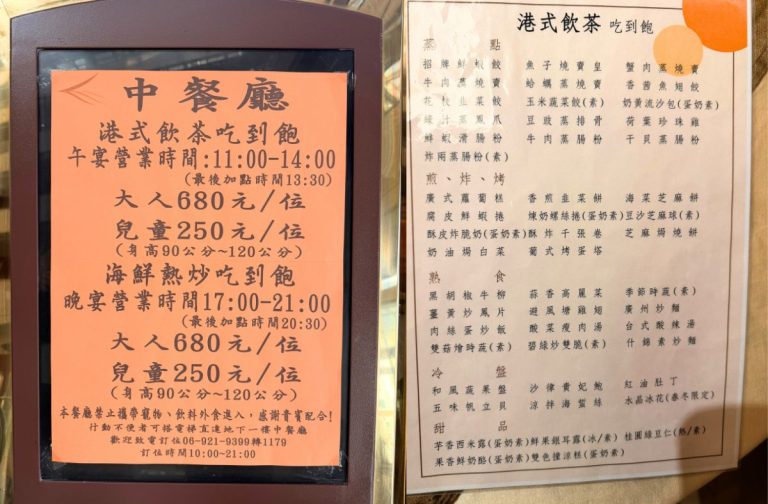 中餐廳
港式飲茶吃到飽
午宴營業時間:11:00-14:00
(最後加點時間13:30)
大人680元/位
兒童250元/位
(身高90公分~120公分)
海鮮熱炒吃到飽
晚宴營業時間17:00-21:00
(最後加點時間20:30)
大人680元/位
兒童250元/位
(身高90公分~120公分)
本餐廳禁止攜帶寵物、飲料外食進入,感謝貴賓配合!
行動不便者可搭電梯直達地下一樓中餐廳
歡迎致電訂位06-921-9399轉1179
訂位時間10:00~21:00
港式飲茶 吃到飽
蒸點
招牌鮮蝦餃 魚子燒賣皇 蟹肉蒸燒賣
牛肉蒸燒賣 蛤蠣蒸燒賣 香茜魚翅餃
花枝韭菜餃 玉米蔬菜餃(素) 奶黃流沙包(蛋奶素)
蠔汁蒸鳳爪 豆豉蒸排骨 荷葉珍珠雞
鮮蝦滑腸粉 牛肉蒸腸粉 干貝蒸腸粉
炸兩蒸腸粉(素)
煎、炸、烤
廣式蘿蔔糕 香煎韭菜餅 海菜芝麻餅
腐皮鮮蝦捲 煉奶螺絲捲(蛋奶素) 豆沙芝麻球(素)
酥皮炸脆奶(蛋奶素) 酥炸千張卷 芝麻焗燒餅
奶油焗白菜 葡式烤蛋塔
熟食
黑胡椒牛柳 蒜香高麗菜 季節時蔬(素)
薑黃炒鳳片 避風塘雞翅 廣州炒麵
肉絲蛋炒飯 酸菜瘦肉湯 台式酸辣湯
雙菇燴時蔬(素) 碧綠炒雙脆(素) 什錦素炒麵
冷盤
和風蔬果盤 沙律貴妃鮑 紅油肚丁
五味帆立貝 涼拌海蜇絲 水晶冰花(春冬限定)
甜品
芋香西米露(蛋奶素) 鮮果銀耳露(冰/素) 桂圓綠豆仁(熱/素)
果香鮮奶酪(蛋奶素) 雙色撞涼糕(蛋奶素)